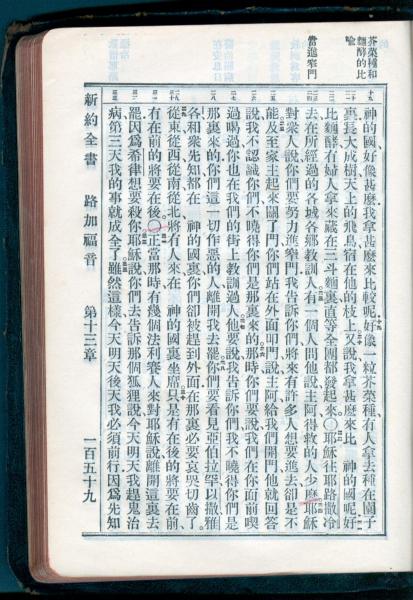 芥菜種和
麵酵的比
喻
當進窄門
神的國好像甚麼我拿甚麼來比較呢好像一粒芥菜種有人拿去種在園子
裏長大成樹天上的飛鳥宿在他的枝上又說我拿甚麼來比　神的國呢好
比麵酵有婦人拿來藏在三斗麵裏直等全團都發起來〇耶穌往耶路撒冷
去在所經過的各城各鄉教訓人有一個人問他說主阿得救的人少麼耶穌
對衆人說你們要努力進窄門我告訴你們將來有許多人想要進去卻是不
能及至家主起來關了門你們站在外面叩門說主阿給我們開門他就回答
說我不認識你們不曉得你們是那裏來的那時你們要說我們在你面前喫
過喝過你也在我們的街上教訓過人他要說我告訴你們我不曉得你們是
那裏來的你們這一切作惡的人離開我去罷你們要看見亞伯拉罕以撒雅
各和衆先知都在　神的國裏你們卻被趕到外面在那裏必要哀哭切齒了
從東從西從南從北將有人來在　神的國裏坐席只是有在後的將要在前
有在前的將要在後〇正當那時有幾個法利賽人來對耶穌說離開這裏去
罷因爲希律想要殺你耶穌說你們去告訴那個狐狸說今天明天我趕鬼治
病第三天我的事就成全了雖然這樣今天明天後天我必須前行因爲先知
新約全書　路加福音　第十三章　一百五十九